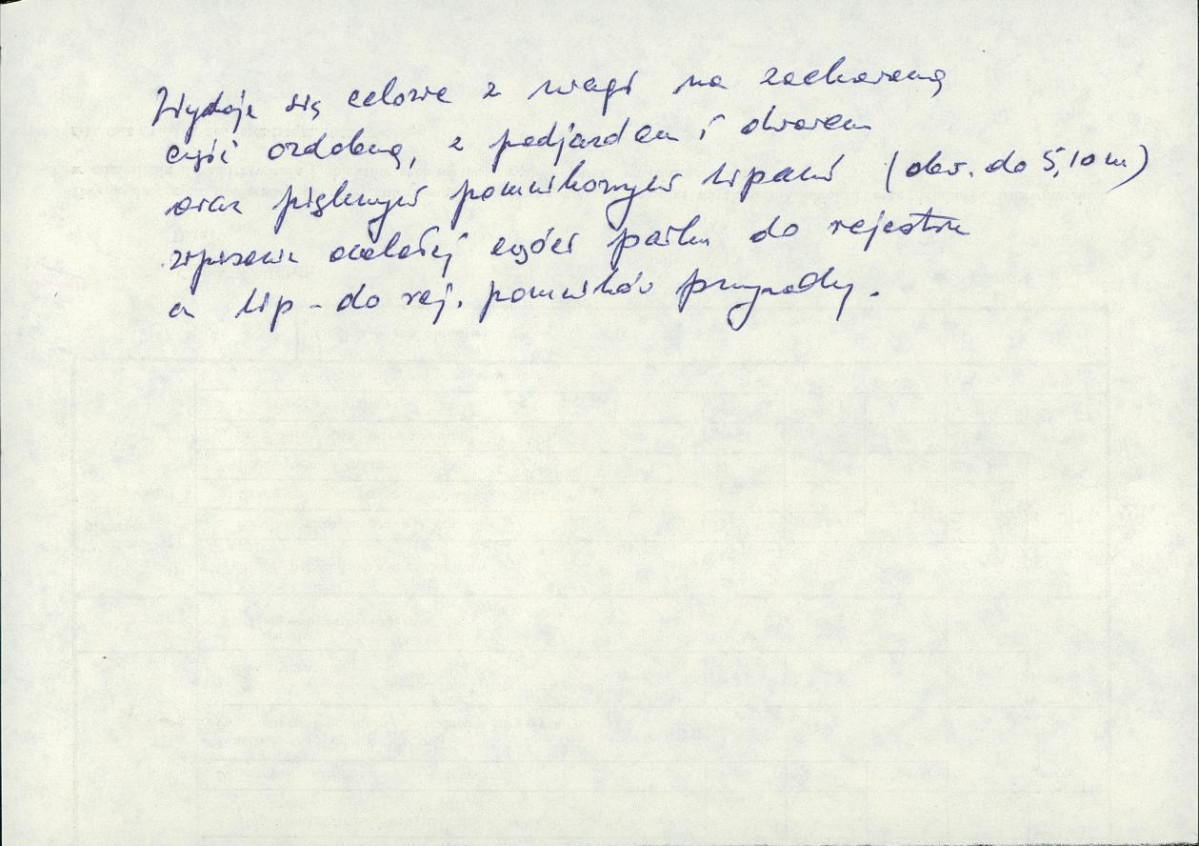 Wydaje się celowe z uwagi na zachowaną
część ozdobną, z podjazdem i dworem
oraz pięknymi pomnikowymi lipami (obw. do 5,10 m)
wpisanie ocalałej części parku do rejestru
a lip - do rej. pomników przyrody.